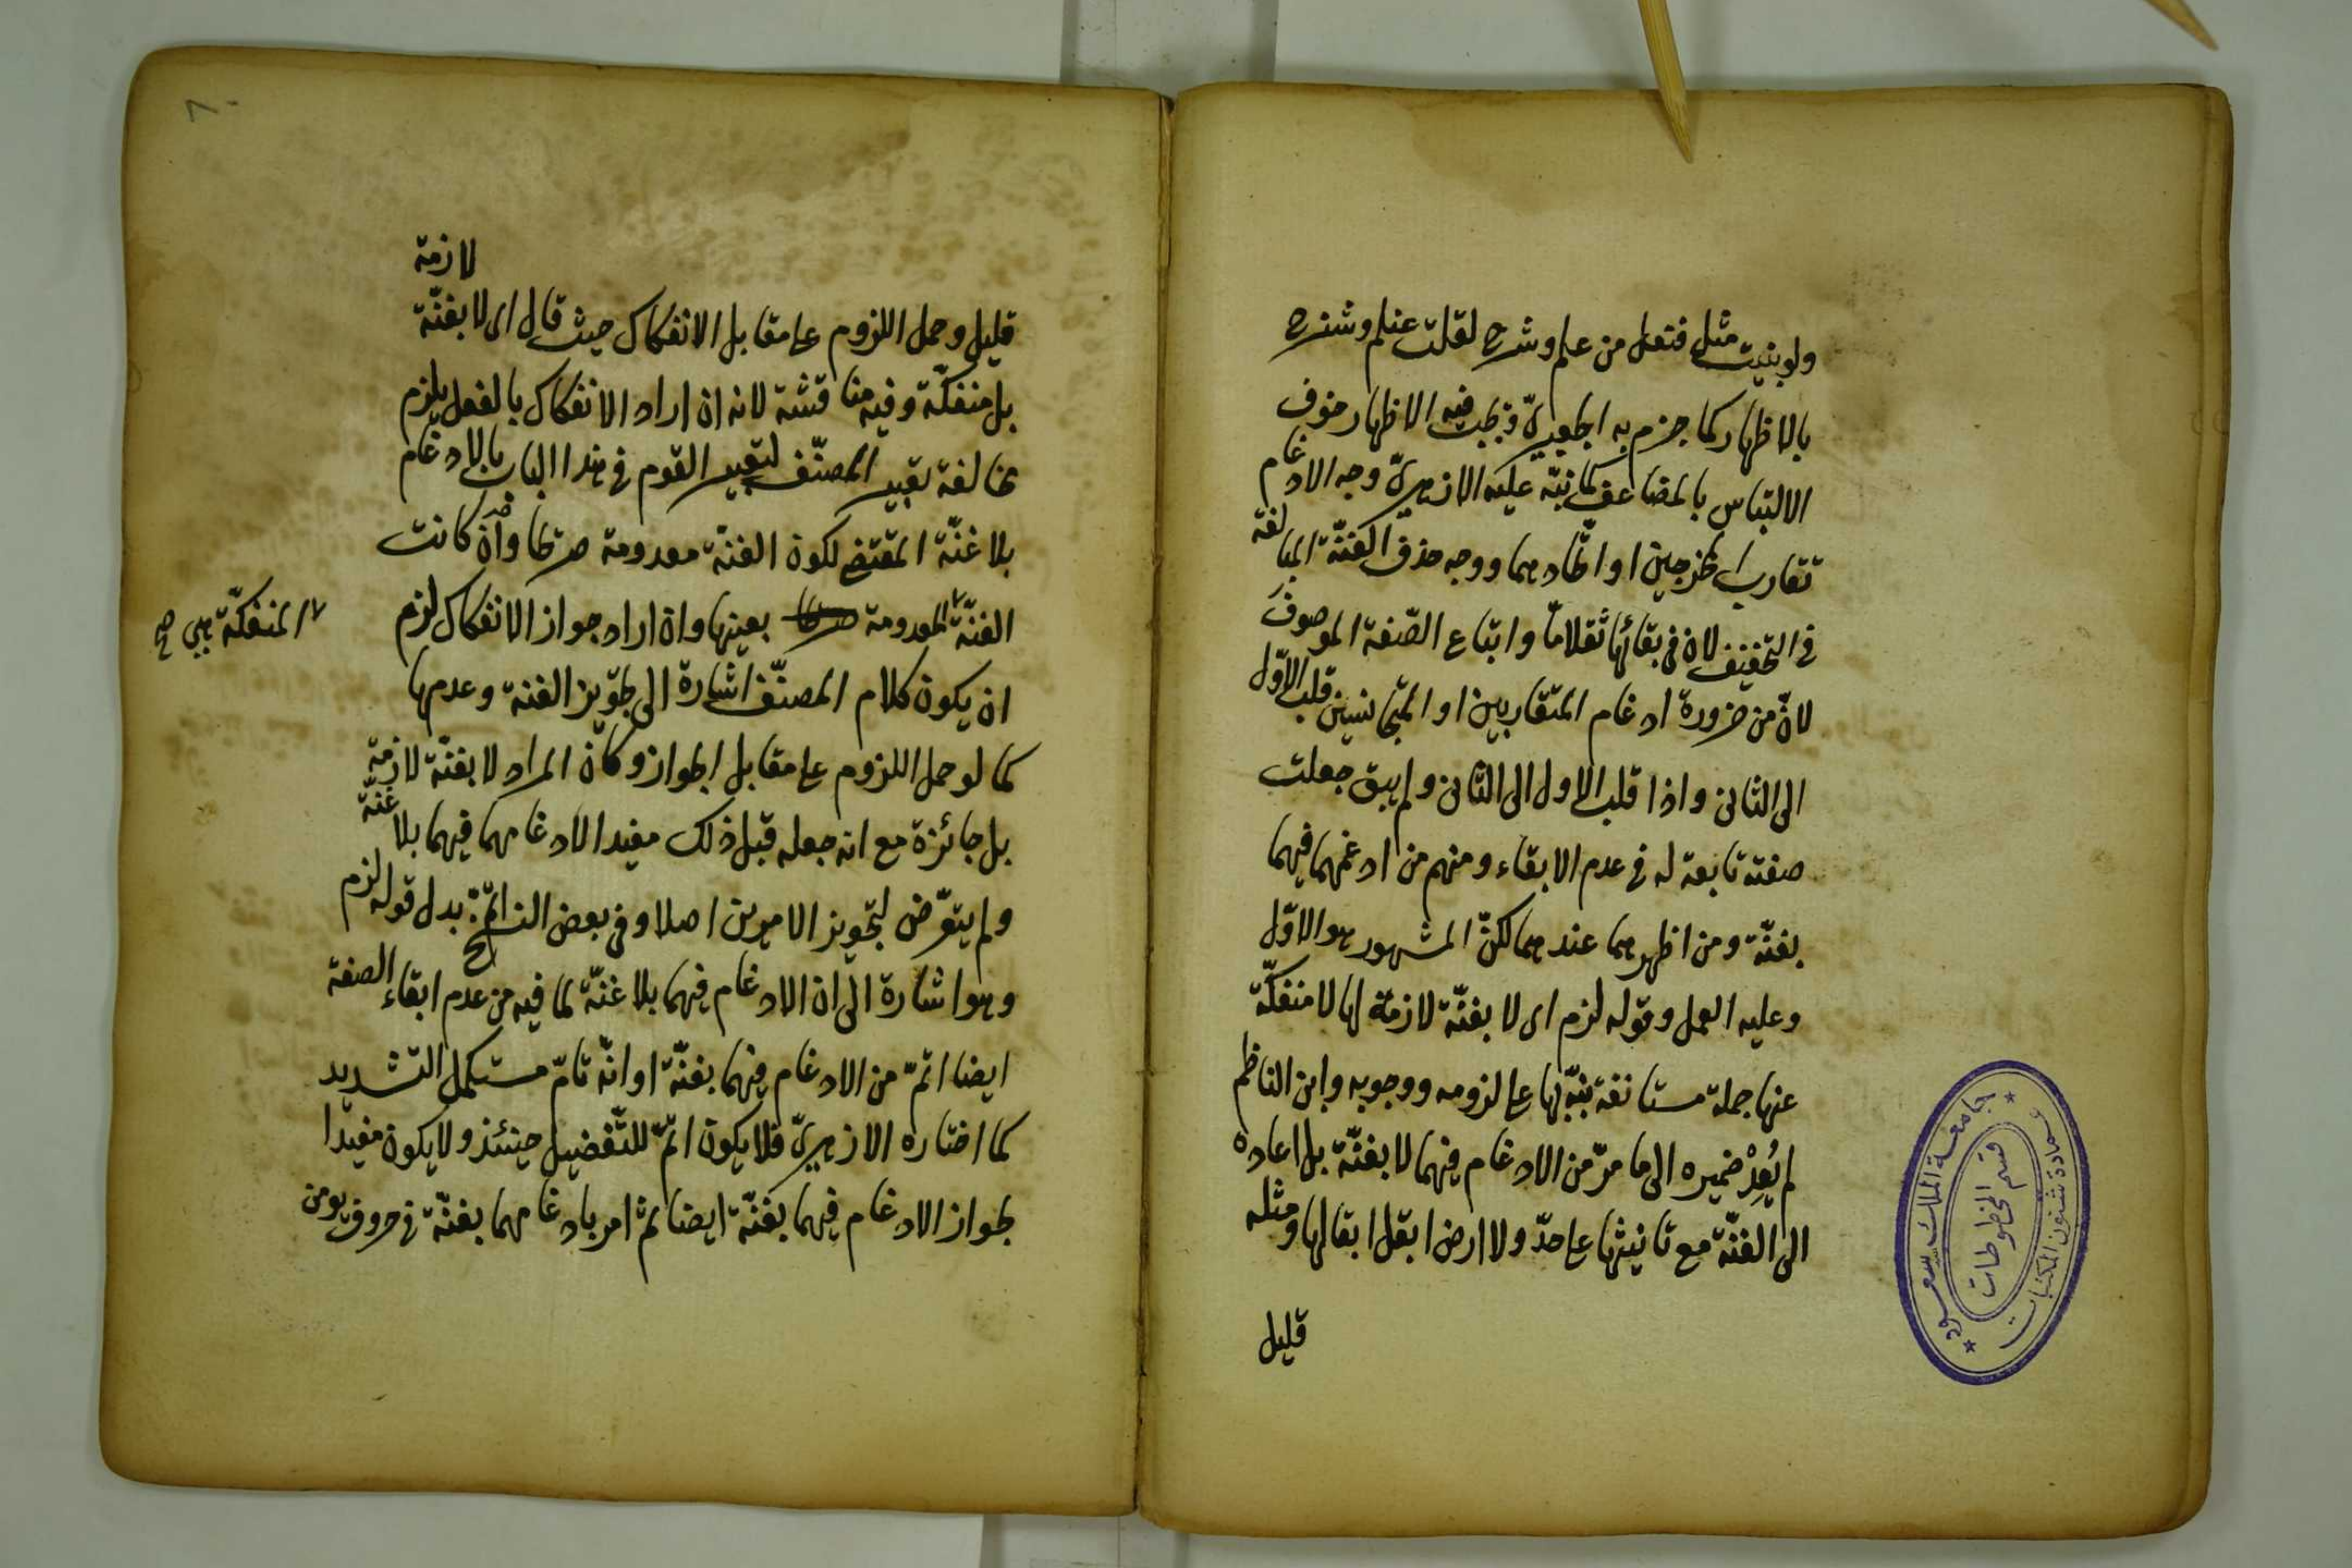 ولو بنيت مثل فنعل من علم وشرح لقلت عنلم وشنرح
بالاظهار كما جزم به الجعبريّ فيجب فيه الاظهار خوف
الالتباس بالمضاعف كما نبّه عليه الازهريّ وجه الادغام
تقارب المخرجين او اتّحادهما ووجه حذف الغنّة المبالغة
في التخفيف لان في بقائها ثقلا مّا واتباع الصّفة الموصوف
لانّ من ضرورة ادغام المتقاربين او المتجانسين قلب الاوّل
الى الثاني واذا قلب الاول الى الثاني ولم يبق جعلت
صفته تابعة له في عدم الابقاء ومنهم من ادغمهما فيهما
بغنّة ومن اظهرهما عندهما لكنّ المشهور هو الاوّل
وعليه العمل وقوله لزم اى لا بغنّة لازمة لها لا منفكّة
عنها جملة مستانفة نبّه بها على لزومه ووجوبه وابن الناظم
لم يُعِدْ ضميره الى ما مرّ من الادغام فيهما لا بغنّة بل اعاده
الى الغنّة مع تانيثها على حدّ ولا ارض ابقل ابقالها ومثله
قليل
جامعة الملك سعود
عمادة شئون المكتبات
قسم المخطوطات
٨٠
لازمة
قليل وحمل اللزوم على مقابل الانفكاك حيث قال اى لا بغنّة
بل منفكّة وفيه مناقشة لانه ان اراد الانفكاك بالفعل يلزم
مخالفة تعبير المصنّف لتعبير القوم في هذا الباب بالادغام
بلا غنّة المقتضى لكون الغنّة معدومة صرفا وان كانت
الغنّة المعدومة بعينها وان اراد جواز الانفكاك لزم
المنفكّة هي صح
ان يكون كلام المصنّف اشارة الى تجويز الغنة وعدمها
كما لو حمل اللزوم على مقابل الجواز وكانّ المراد لا بغنّة لازمة
بل جائزة مع انه جعله قبل ذلك مفيدا لادغامهما فيهما بلا غنّة
ولم يتعرّض لتجويز الامرين اصلا وفي بعض النسخ اتمّ بدل قوله لزم
وهو اشارة الى ان الادغام فيهما بلا غنّة لما فيه من عدم ابقاء الصفة
ايضا اتمّ من الادغام فيهما بغنّة او انّه تامّ مستكمل التشديد
كما اختاره الازهريّ فلا يكون اتمّ للتّفضيل حينئذ ولا يكون مفيدا
لجواز الادغام فيهما بغنّة ايضا ثم امر بادغامهما بغنّة في حروف يومن